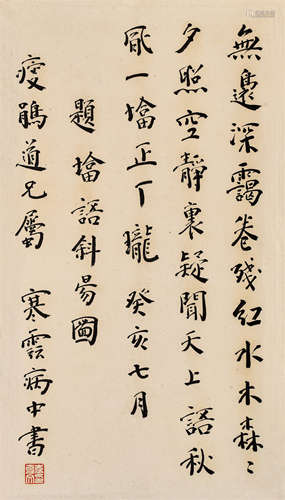 無邊深靄卷殘紅水木森〻
夕照空靜裏疑聞天上語秋
風一塔正丁瓏癸亥七月
題塔語斜昜圖
瘦鵑道兄屬 寒雲病中書